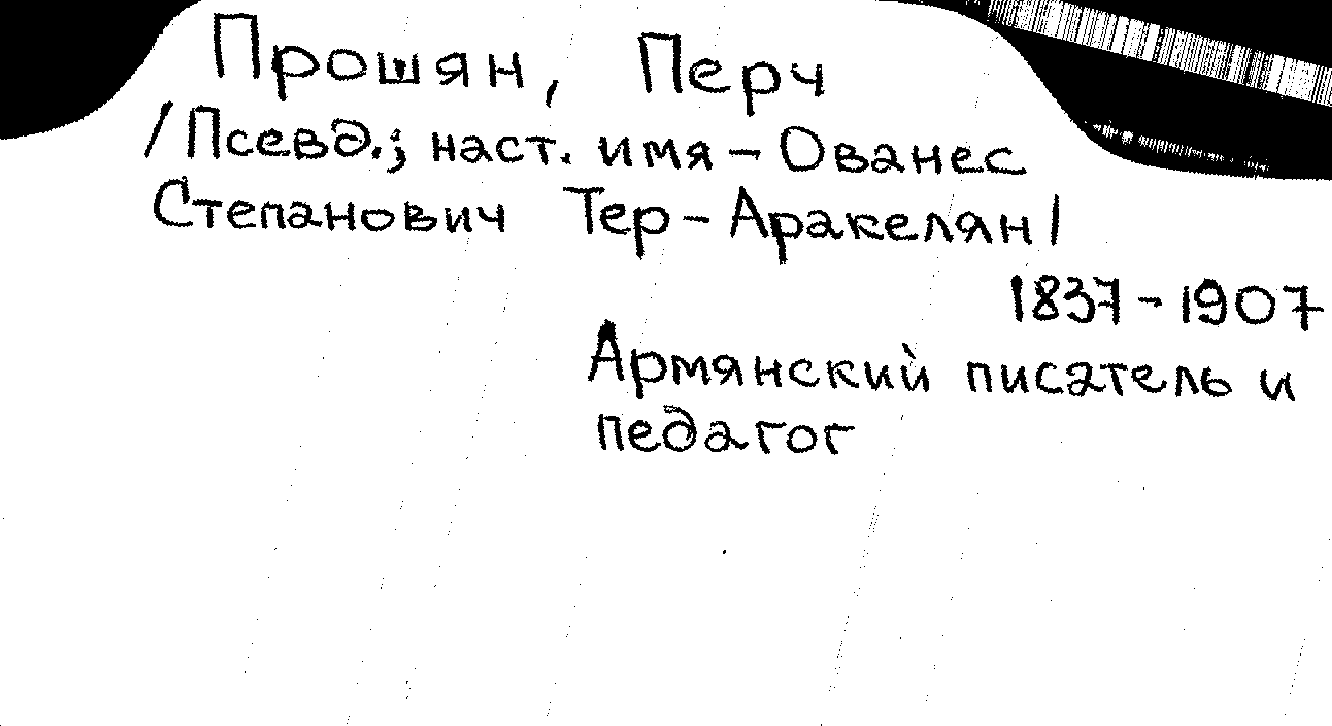 Прошян, Перч
/Псевд.; наст. имя - Ованес
Степанович Тер-Аракелян/
1837-1907
Армянский писатель и
педагог